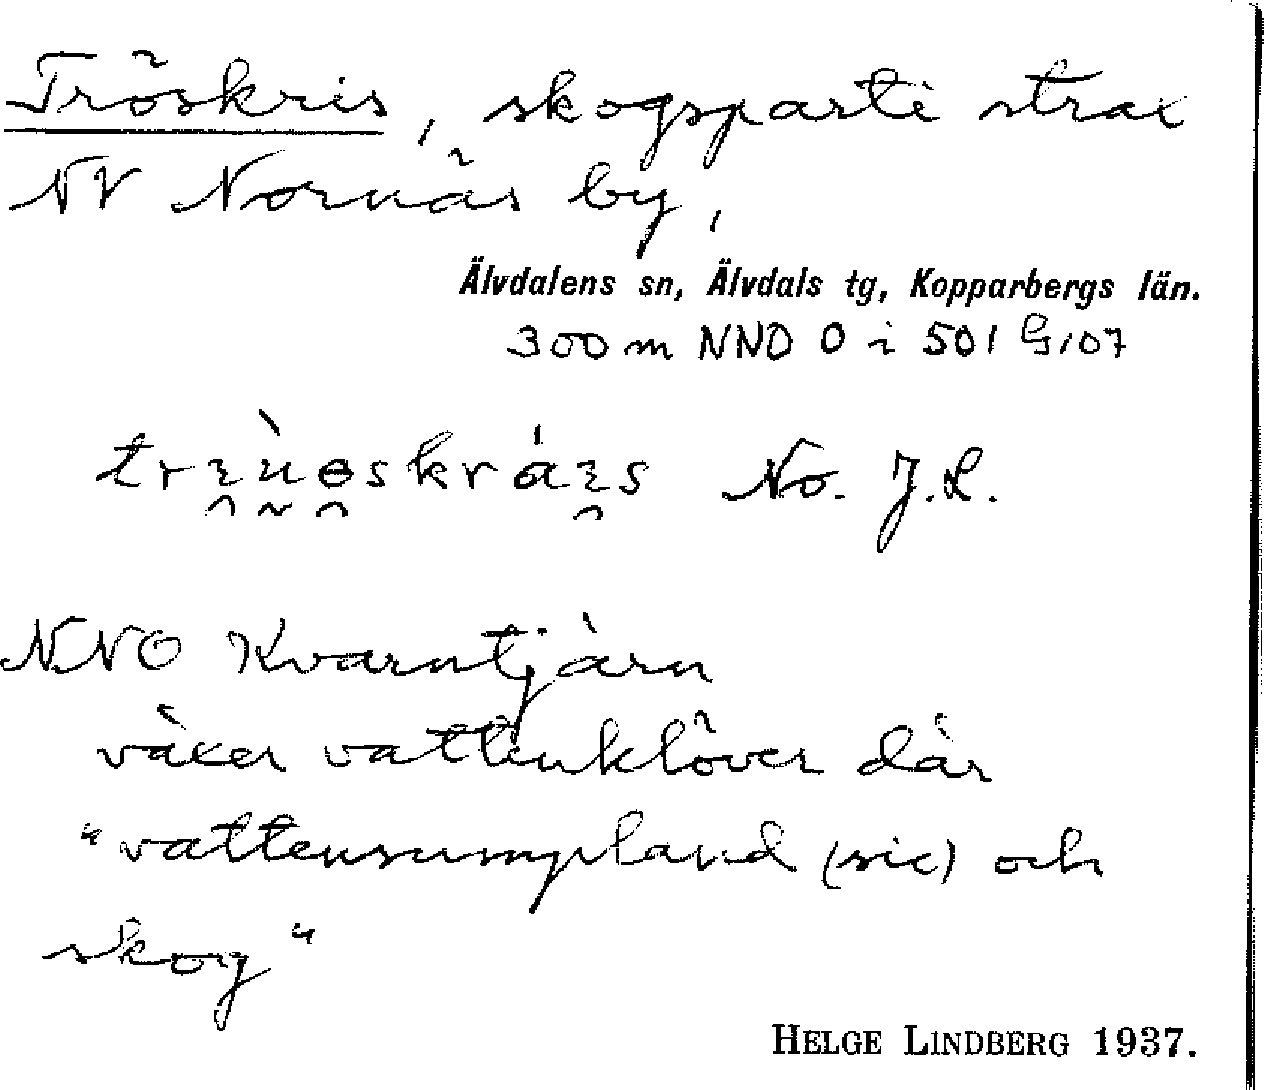 Tröskris, skogsparti strax
NV Nornäs by,
Älvdalens sn, Älvdals tg, Kopparbergs län.
300 m NNO O i 501 G 107
No. J.L.
NNO Kvarntjärn
växer vattenklöver där
"vattensumpland (sic) och
skog"
HELGE LINDBERG 1937.